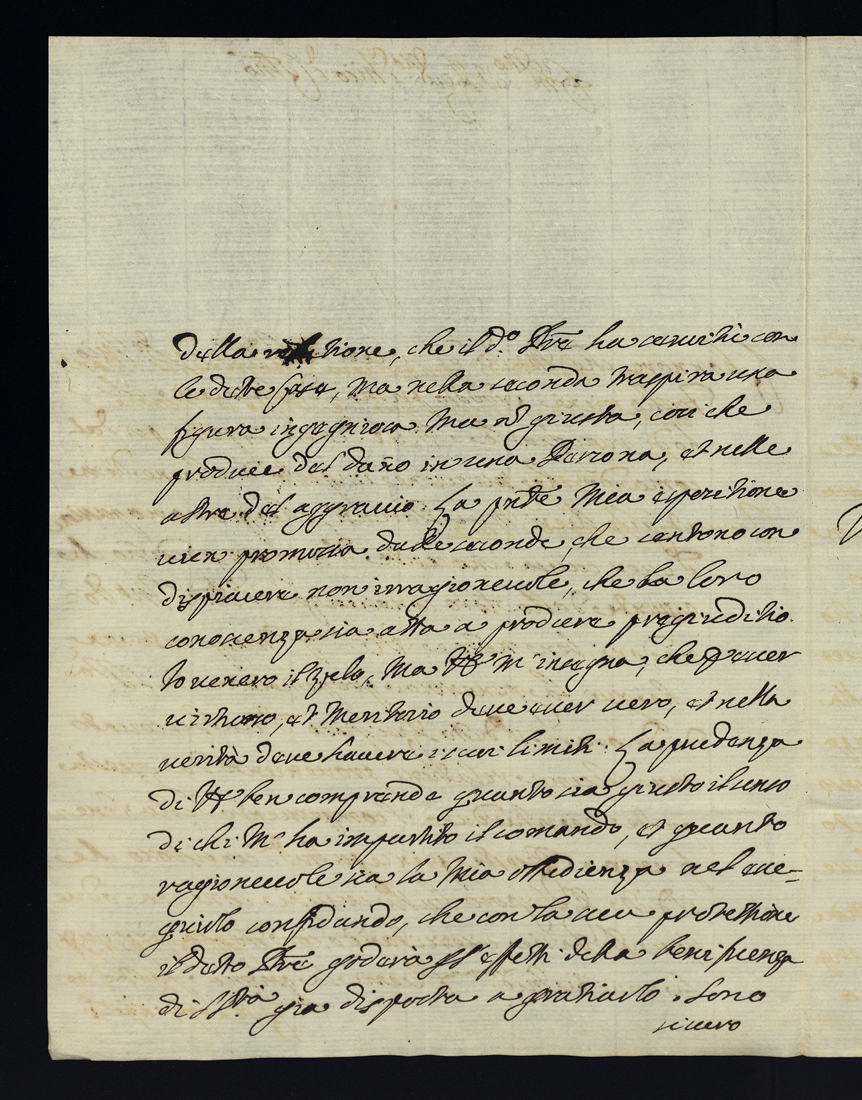 della relatione, che il d.º Pre ha contratto con
le dette Case, Ma nella seconda traspira una
figura ingegniosa Ma nõ giusta, così che
produce del daño in una Persona, et nelle
altre del aggravio. La pñte Mia espositione
vien promossa dalle seconde, che sentono con
dispiacere non irragionevole, che la loro
conoscenza sia atta a produrre pregiuditio.
Io venero il zelo, Ma m'insegna, che p esser
virtuoso, et Meritorio deve esser vero, et nella
verità deve havere i suoi limiti. La prudenza
di ben comprende quanto sia giusto il senso
di chi M' ha impartito il comando, et quanto
ragionevole sia la Mia obbedienza nel ese-
guirlo confidando, che con la sua protettione
il detto Pre goderà gl' effetti della beneficenza
di già disposta a gratiarlo. Sono
sicuro